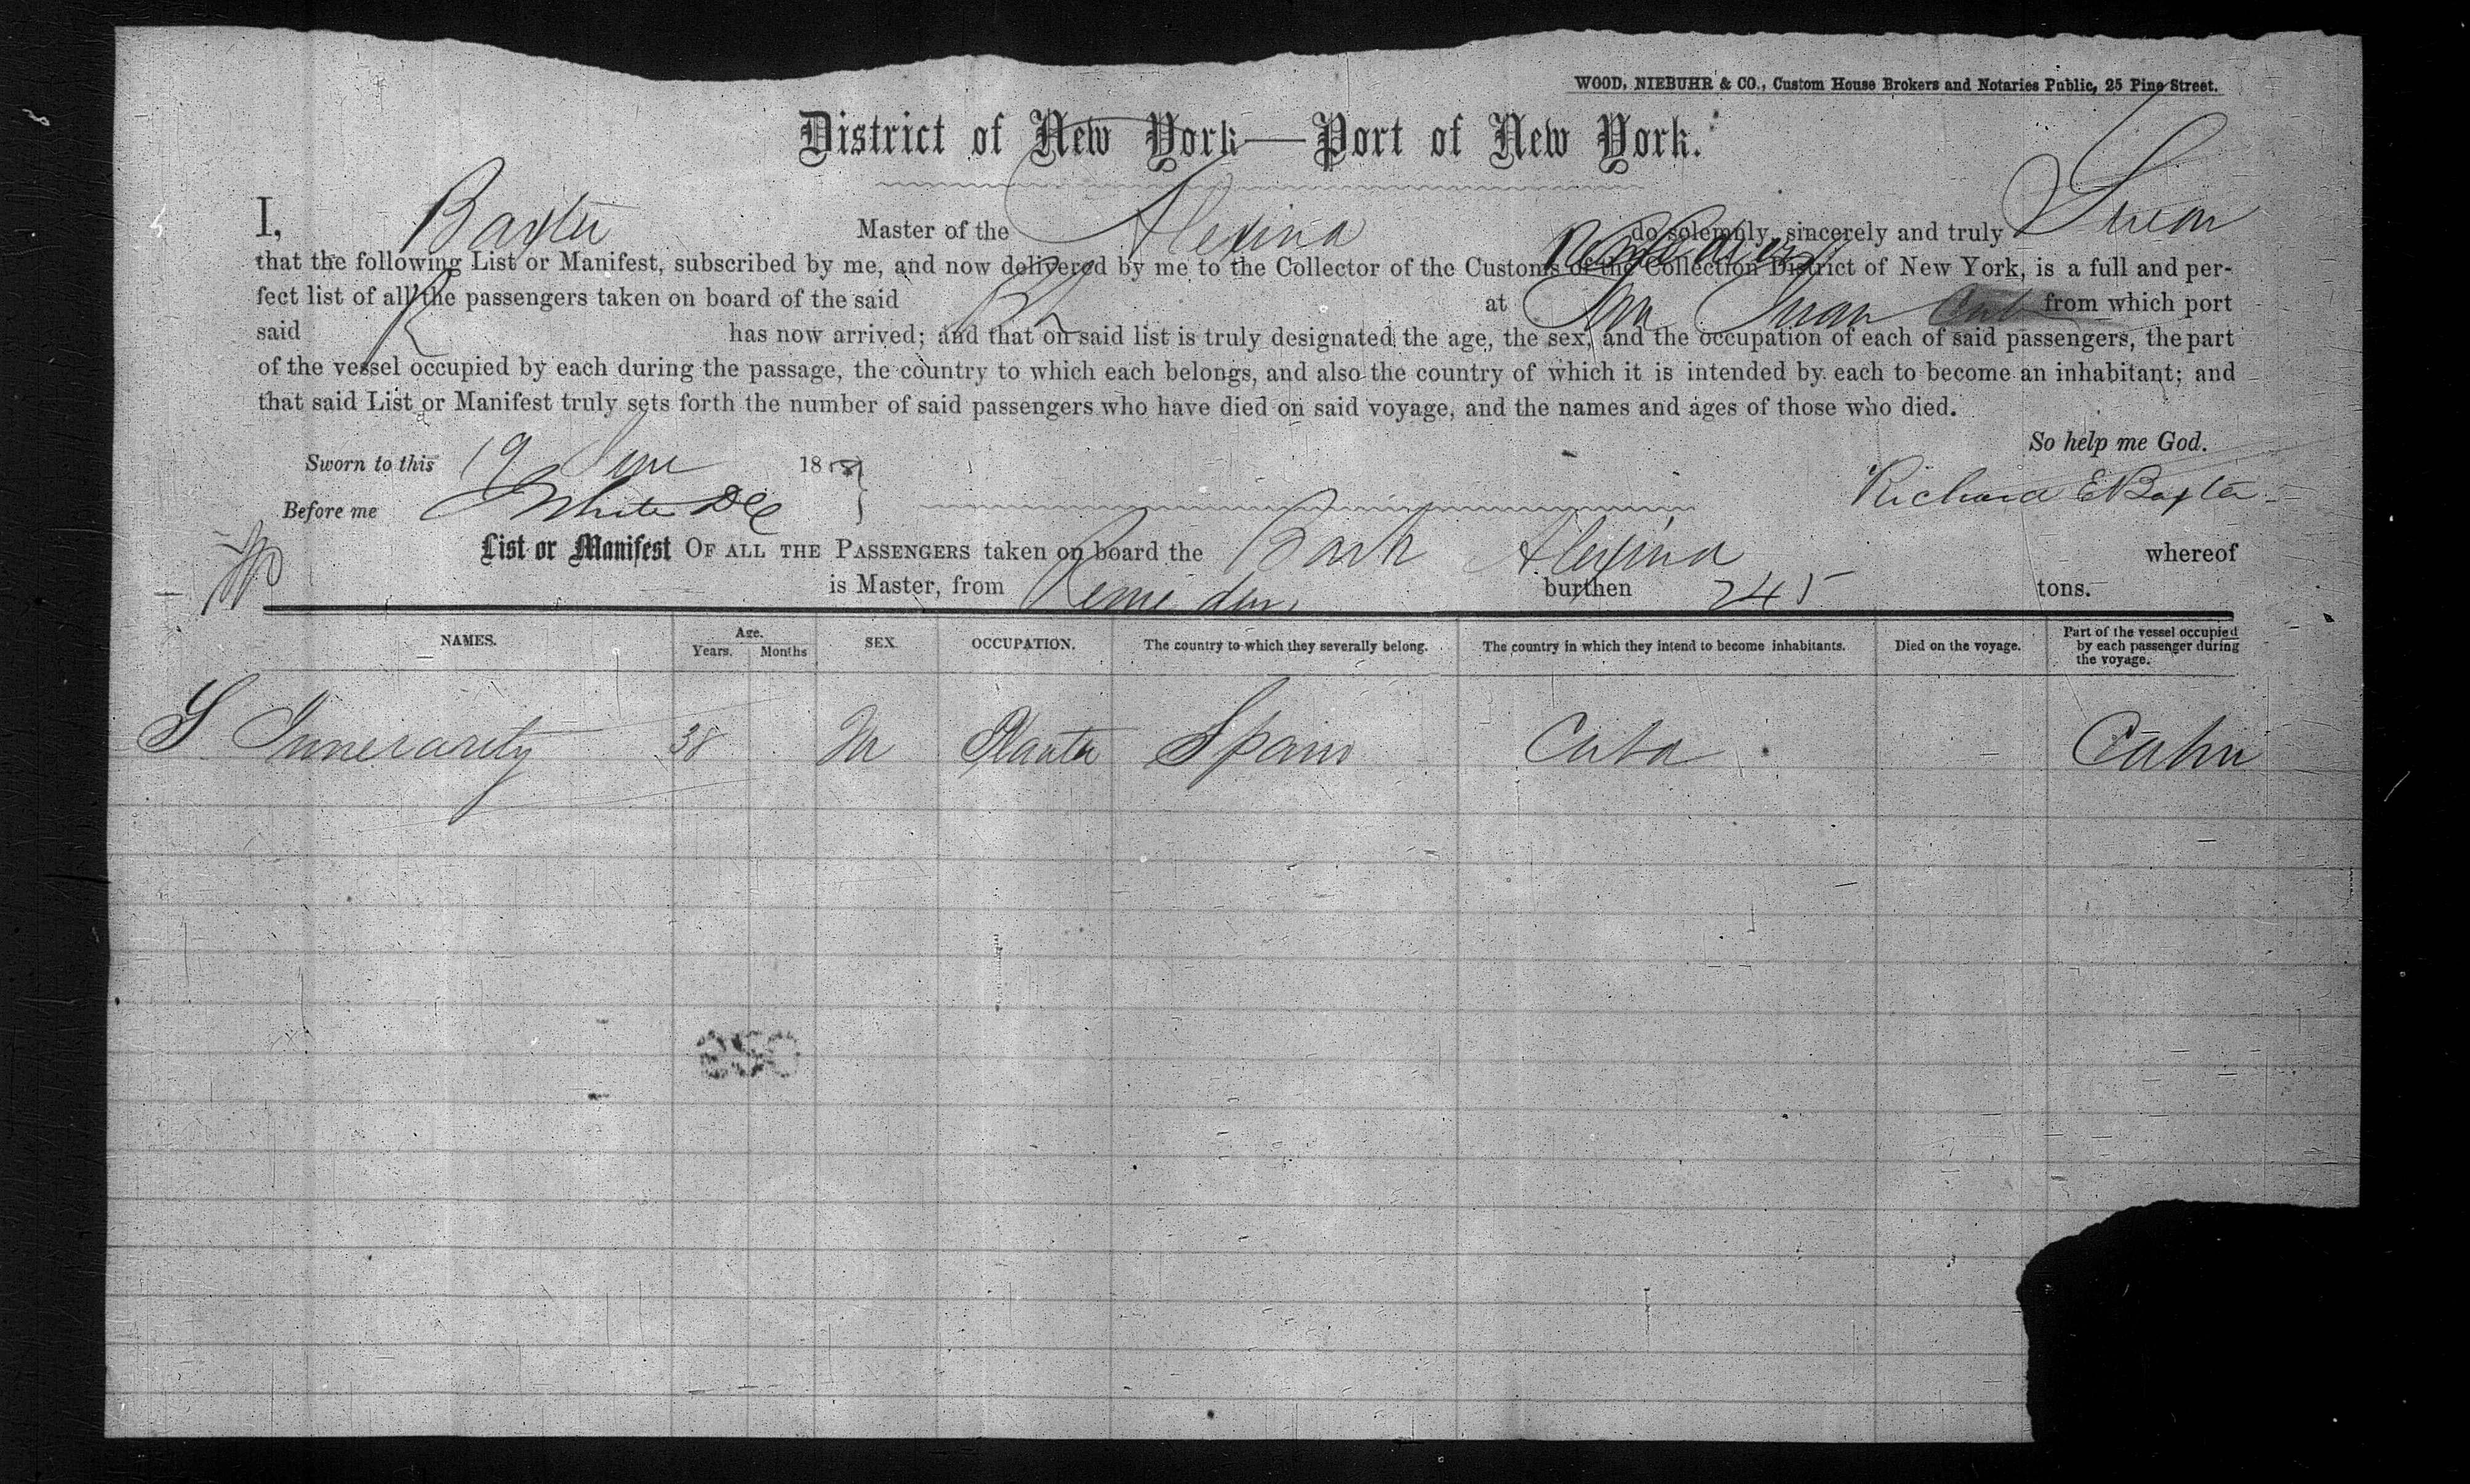 WOOD, NIEBUHR & CO., Custom House Brokers and Notaries Public, 25 Pine Street.
District of New York—Port of New York.
I, Baxter Master of the Alexina do solemnly, sincerely and truly Swear
that the following List or Manifest, subscribed by me, and now delivered by me to the Collector of the Customs of the Collection District of New York, is a full and per-
fect list of all the passengers taken on board of the said Bk at San Juan from which port
said Bk has now arrived; and that on said list is truly designated the age, the sex, and the occupation of each of said passengers, the part
of the vessel occupied by each during the passage, the country to which each belongs, and also the country of which it is intended by each to become an inhabitant; and
that said List or Manifest truly sets forth the number of said passengers who have died on said voyage, and the names and ages of those who died.
So help me God.
Sworn to this 19 June 18
Richard E Baxter
Before me White
List or Manifest OF ALL THE PASSENGERS taken on board the Bark Alexina whereof
is Master, from Remedios burthen 245 tons.
NAMES. Age. Years. Months SEX. OCCUPATION. The country to which they severally belong. The country in which they intend to become inhabitants. Died on the voyage. Part of the vessel occupied by each passenger during the voyage.
S Innerarity 38 M Planter Spain Cuba - Cabin